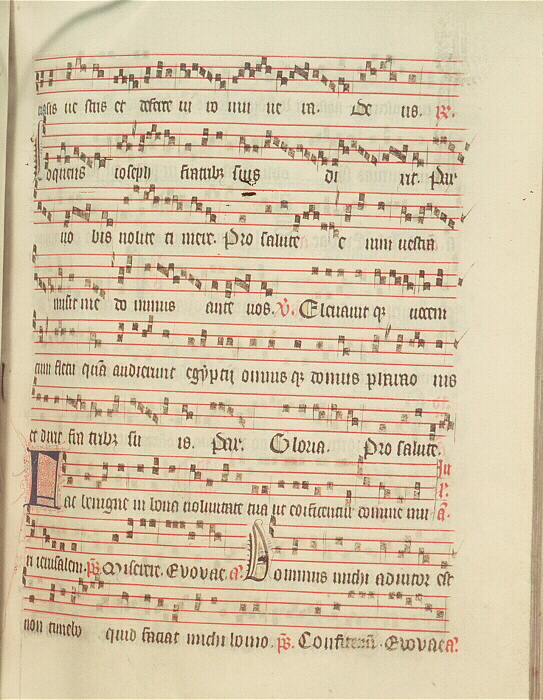 et de us.
oquens ioseph fratribz suis di xit. Par
uo bis nolite ti mere. Pro salute e nim uestra
misit me do minus ante uos. V. Eleuauit qz uocem
cum fletu quā audierunt egyptij omnis qz domus pharao nis
et dixit fra tribz su is. Par. Gloria. Pro salute.
ac benigne in bona uoluntate tua ut edificentur domine mu
ri ierusalem. ps. Miserere. Evovae. a. Dominus michi adiutor est
non timebo quid faciat michi homo. ps. Confitem. Evovae a.